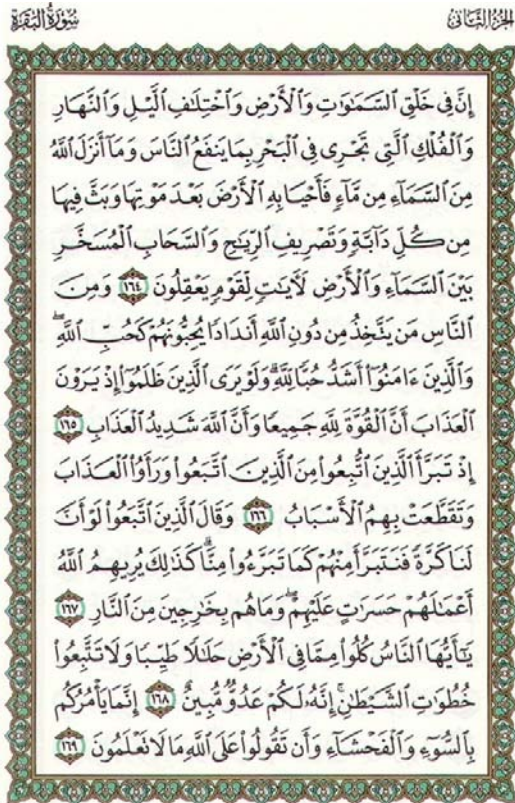 الجزء الثاني
سورة البقرة
إِنَّ فِي خَلْقِ ٱلسَّمَٰوَٰتِ وَٱلْأَرْضِ وَٱخْتِلَٰفِ ٱلَّيْلِ وَٱلنَّهَارِ
وَٱلْفُلْكِ ٱلَّتِي تَجْرِي فِي ٱلْبَحْرِ بِمَا يَنفَعُ ٱلنَّاسَ وَمَآ أَنزَلَ ٱللَّهُ
مِنَ ٱلسَّمَآءِ مِن مَّآءٍ فَأَحْيَا بِهِ ٱلْأَرْضَ بَعْدَ مَوْتِهَا وَبَثَّ فِيهَا
مِن كُلِّ دَآبَّةٍ وَتَصْرِيفِ ٱلرِّيَٰحِ وَٱلسَّحَابِ ٱلْمُسَخَّرِ
بَيْنَ ٱلسَّمَآءِ وَٱلْأَرْضِ لَأٓيَٰتٍ لِّقَوْمٍ يَعْقِلُونَ ١٦٤ وَمِنَ
ٱلنَّاسِ مَن يَتَّخِذُ مِن دُونِ ٱللَّهِ أَندَادًا يُحِبُّونَهُمْ كَحُبِّ ٱللَّهِۖ
وَٱلَّذِينَ ءَامَنُوٓا۟ أَشَدُّ حُبًّا لِّلَّهِۗ وَلَوْ يَرَى ٱلَّذِينَ ظَلَمُوٓا۟ إِذْ يَرَوْنَ
ٱلْعَذَابَ أَنَّ ٱلْقُوَّةَ لِلَّهِ جَمِيعًا وَأَنَّ ٱللَّهَ شَدِيدُ ٱلْعَذَابِ ١٦٥
إِذْ تَبَرَّأَ ٱلَّذِينَ ٱتُّبِعُوا۟ مِنَ ٱلَّذِينَ ٱتَّبَعُوا۟ وَرَأَوُا۟ ٱلْعَذَابَ
وَتَقَطَّعَتْ بِهِمُ ٱلْأَسْبَابُ ١٦٦ وَقَالَ ٱلَّذِينَ ٱتَّبَعُوا۟ لَوْ أَنَّ
لَنَا كَرَّةً فَنَتَبَرَّأَ مِنْهُمْ كَمَا تَبَرَّءُوا۟ مِنَّاۗ كَذَٰلِكَ يُرِيهِمُ ٱللَّهُ
أَعْمَٰلَهُمْ حَسَرَٰتٍ عَلَيْهِمْۖ وَمَا هُم بِخَٰرِجِينَ مِنَ ٱلنَّارِ ١٦٧
يَٰٓأَيُّهَا ٱلنَّاسُ كُلُوا۟ مِمَّا فِي ٱلْأَرْضِ حَلَٰلًا طَيِّبًا وَلَا تَتَّبِعُوا۟
خُطُوَٰتِ ٱلشَّيْطَٰنِۚ إِنَّهُۥ لَكُمْ عَدُوٌّ مُّبِينٌ ١٦٨ إِنَّمَا يَأْمُرُكُم
بِٱلسُّوٓءِ وَٱلْفَحْشَآءِ وَأَن تَقُولُوا۟ عَلَى ٱللَّهِ مَا لَا تَعْلَمُونَ ١٦٩